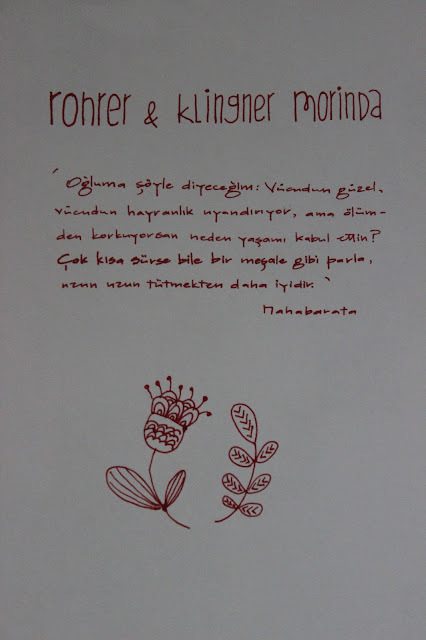 rohrer & klingner morinda
' Oğluma şöyle diyeceğim: Vücudun güzel,
vücudun hayranlık uyandırıyor, ama ölüm-
den korkuyorsan neden yaşamı kabul ettin?
Çok kısa sürse bile bir meşale gibi parla,
uzun uzun tütmekten daha iyidir. '
Mahabarata